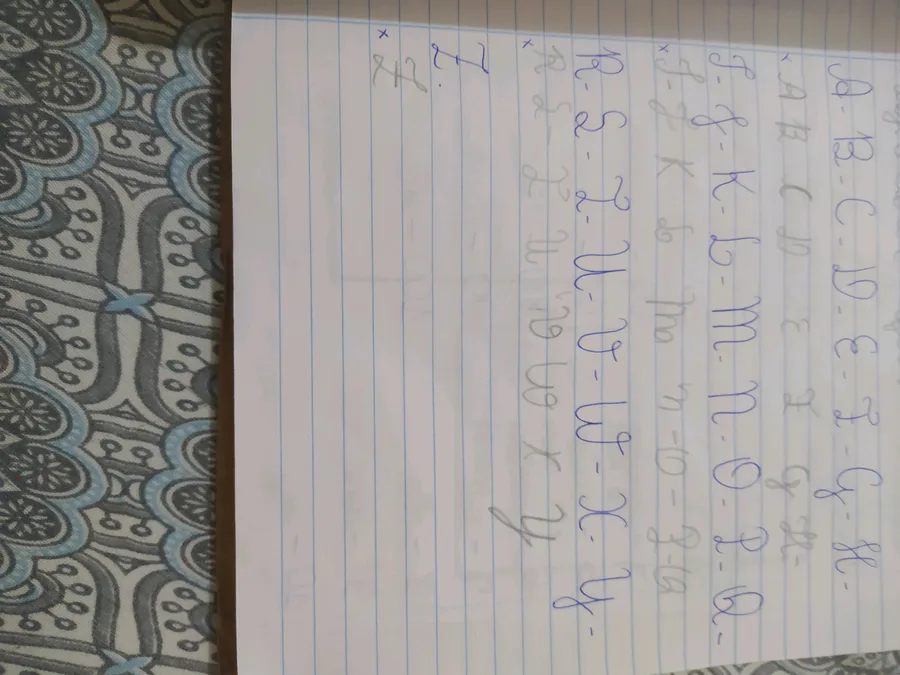 A - B - C - D - E - F - G - H -
x A B C D E F G H -
I - J - K - L - M - N - O - P - Q -
x I - J K L M N - O - P - Q
R - S - T - U - V - W - X - Y -
x R S - T U V W X Y
Z.
x Z